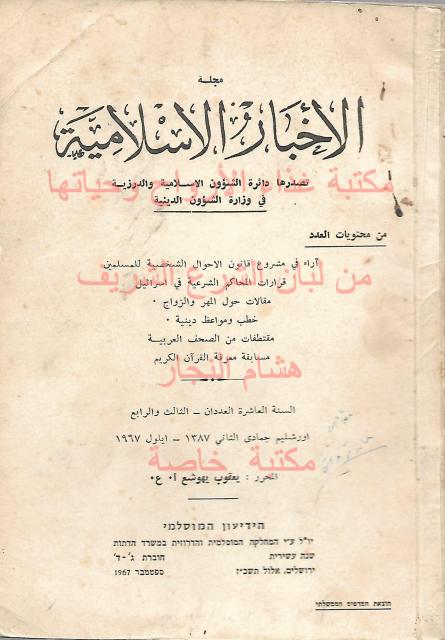 مجلة
الأخبار الاسلامية
تصدرها دائرة الشؤون الاسلامية والدرزية
مكتبة غذاء الأرواح وحياتها
في وزارة الشؤون الدينية
من محتويات العدد
آراء في مشروع قانون الاحوال الشخصية للمسلمين
من لبان الشرع الشريف
قرارات المحاكم الشرعية في اسرائيل
مقالات حول المهر والزواج ٠
خطب ومواعظ دينية ٠
مقتطفات من الصحف العربية
مسابقة معرفة القرآن الكريم
هشام النجار
السنة العاشرة العددان – الثالث والرابع
اورشليم جمادى الثاني ١٣٨٧ – ايلول ١٩٦٧
مكتبة خاصة
المحرر : يعقوب يهوشع ا٠ ع٠
הידיעון המוסלמי
יו"ל ע"י המחלקה המוסלמית והדרוזית במשרד הדתות
שנה עשירית חוברת ג'-ד'
ירושלים, אלול תשכ"ז ספטמבר 1967
הוצאת המדפיס הממשלתי